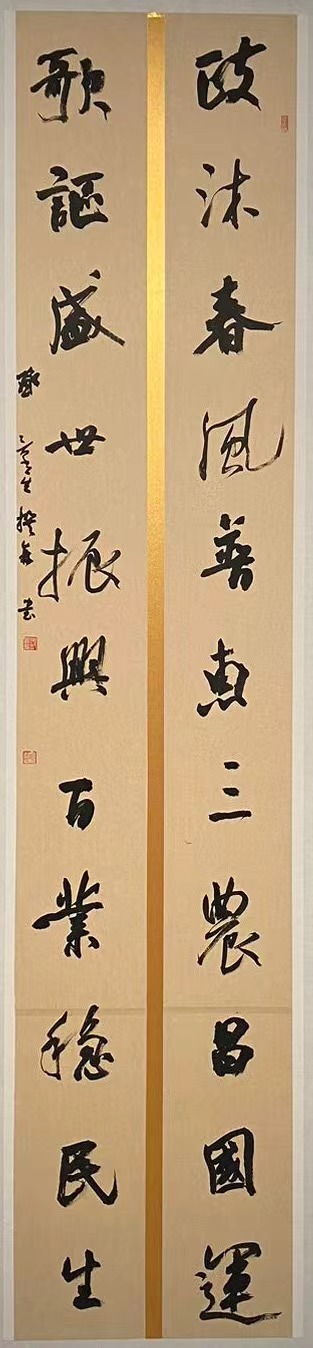 政沐春風普惠三農昌國運
歌謳盛世振興百業穩民生
書